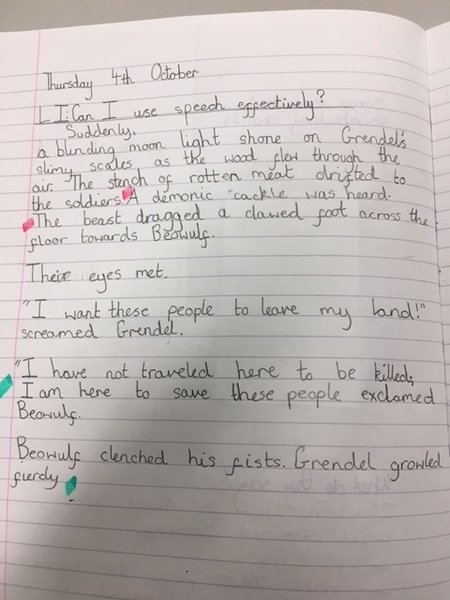 Thursday 4th October
L I: Can I use speech effectively?
Suddenly,
a blinding moon light shone on Grendel's
slimy scales as the wood flew through the
air. The stench of rotten meat drifted to
the soldiers. A demonic cackle was heard.
The beast dragged a clawed foot across the
floor towards Beowulf.
Their eyes met.
"I want these people to leave my land!"
screamed Grendel.
"I have not traveled here to be killed;
I am here to save these people exclamed
Beowulf.
Beowulf clenched his fists. Grendel growled
fierdy.